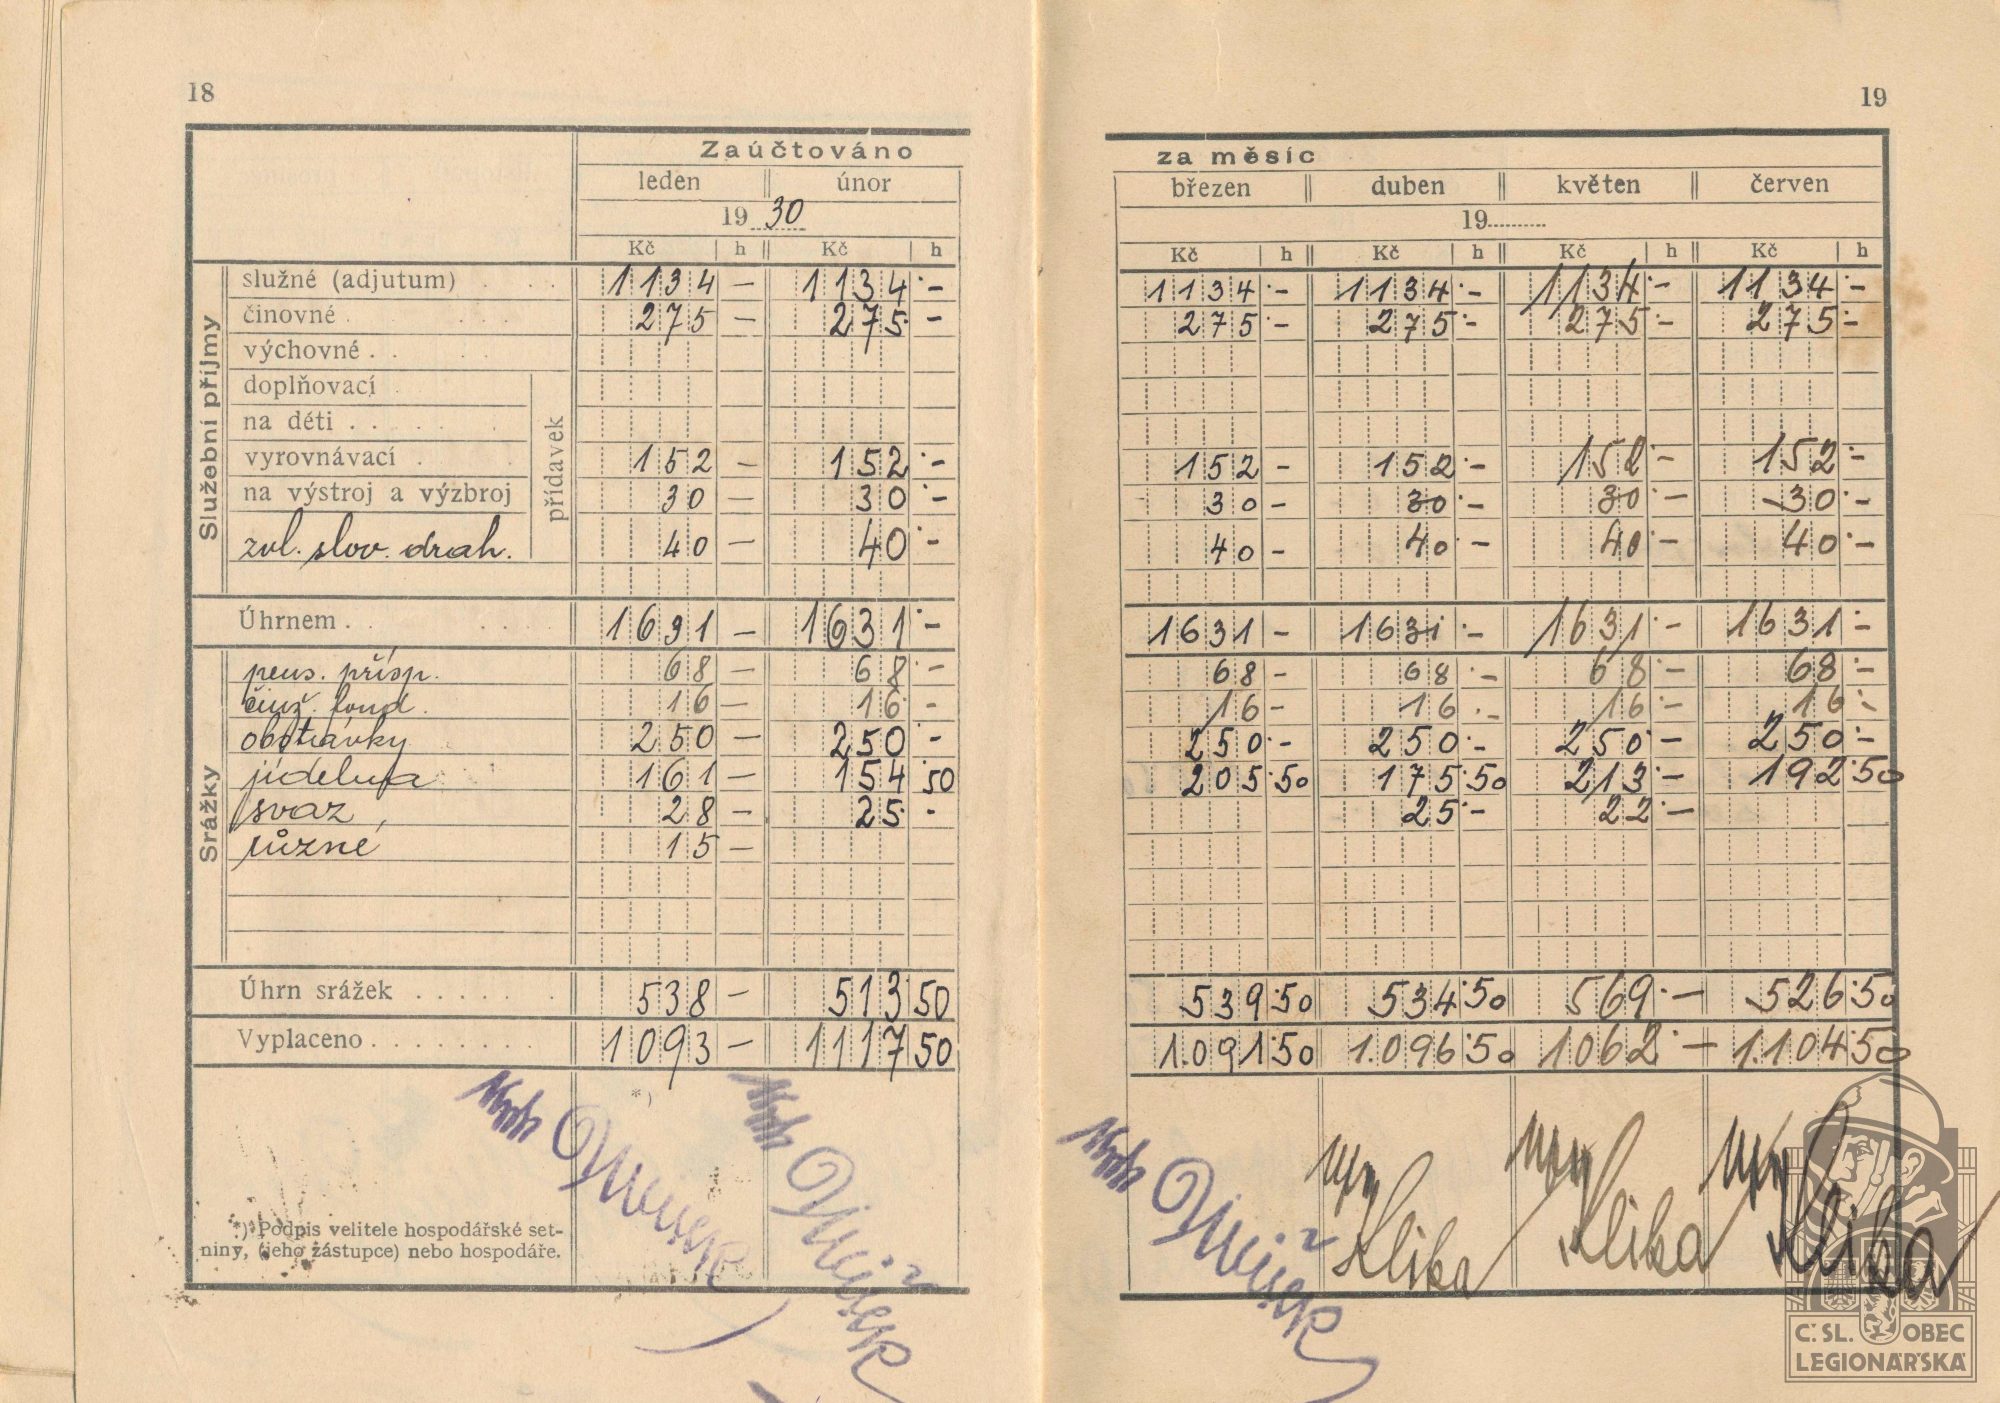 18
Zaúčtováno
leden únor
19 30
Kč h Kč h
Služební příjmy
služné (adjutum) . . . 1134 — 1134·—
činovné . . . 275 — 275·—
výchovné . . .
doplňovací
na děti . . . .
přídavek
vyrovnávací . 152 — 152·—
na výstroj a výzbroj 30 — 30·—
zvl. slov. drah. 40 — 40·—
Úhrnem . . . 1631 — 1631·—
Srážky
pens. přísp. 68 — 68·—
činž. fond. 16 — 16·—
obštávky 250 — 250·—
jídelna 161 — 154 50
svaz 28 — 25·—
různé 15 —
Úhrn srážek . . . . . . 538 — 513 50
Vyplaceno . . . . . . . . 1093 — 1117 50
*)
*) Podpis velitele hospodářské set-
niny, (jeho zástupce) nebo hospodáře.
19
za měsíc
březen duben květen červen
19..........
Kč h Kč h Kč h Kč h
1134·— 1134·— 1134·— 1134·—
275·— 275·— 275·— 275·—
152 — 152·— 152·— 152·—
30 — 30·— 30·— 30·—
40 — 40·— 40·— 40·—
1631 — 1631·— 1631·— 1631·—
68 — 68·— 68·— 68·—
16 — 16·— 16·— 16·—
250·— 250·— 250·— 250·—
205·50 175·50 213·— 192·50
25·— 22·—
539·50 534·50 569·— 526·50
1.091·50 1.096·50 1062·— 1.104·50
Klika Klika Klika
Č. SL. OBEC
LEGIONÁŘSKÁ